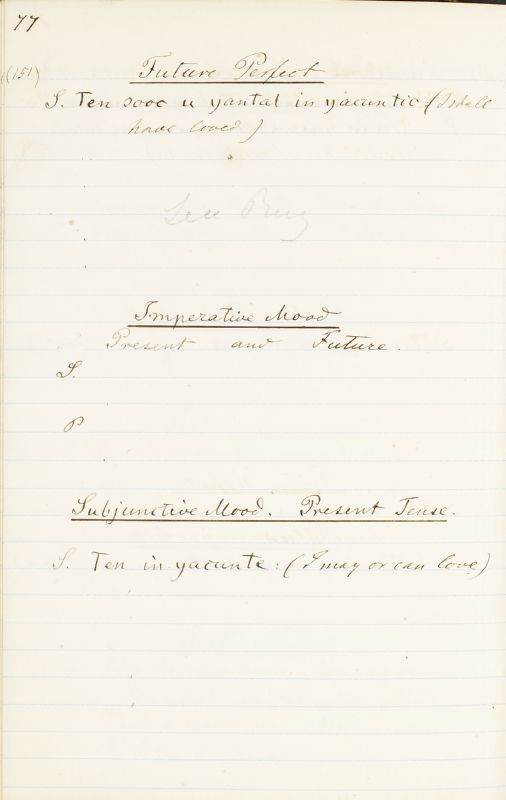 77
(151)
Future Perfect
S. Ten sooc u yantal in yacuntic (I shall
have loved)
See Ruz
Imperative Mood
Present and Future.
S.
P
Subjunctive Mood. Present Tense.
S. Ten in yacunte: (I may or can love)